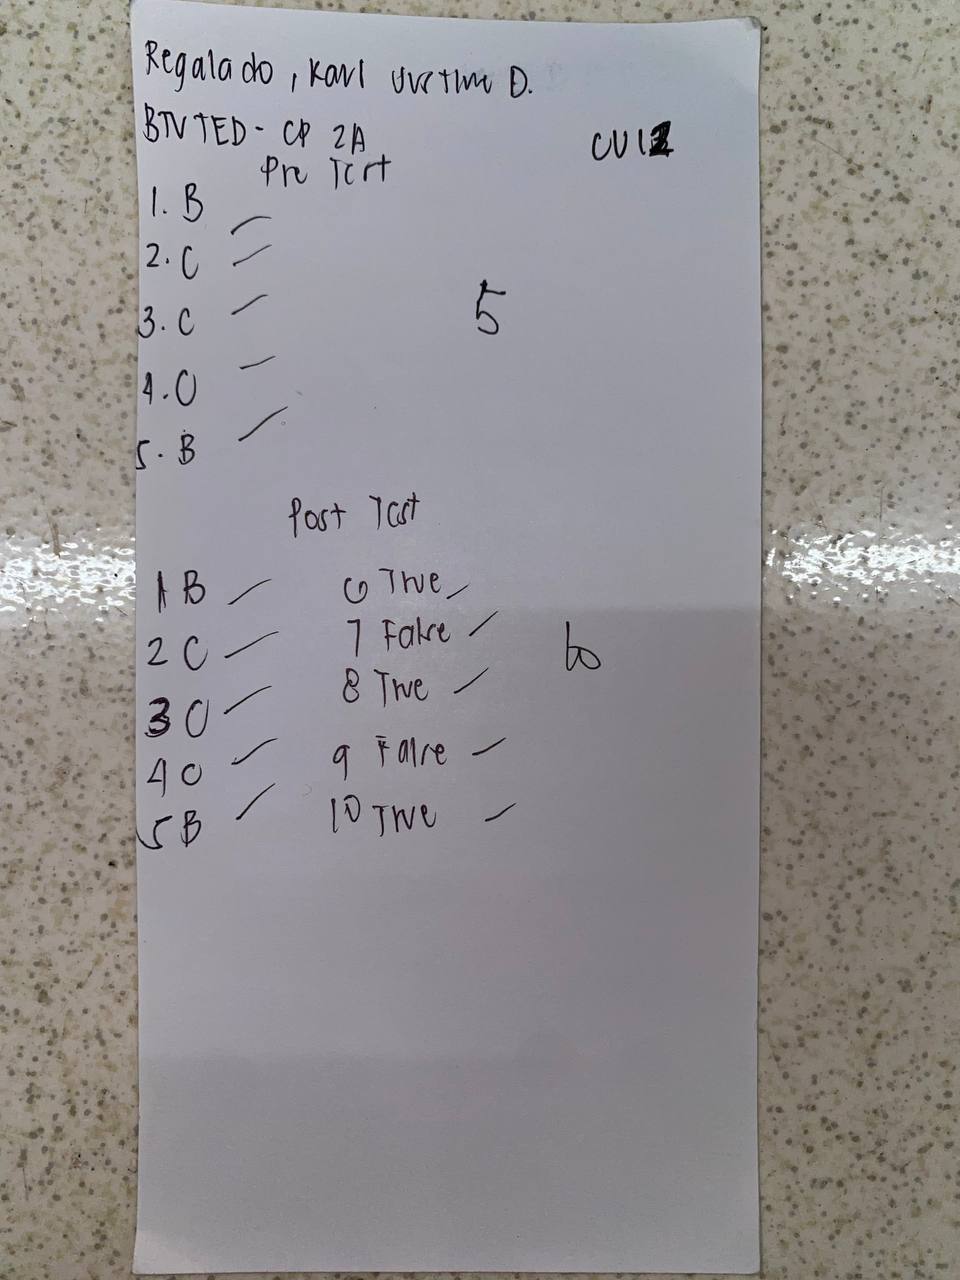 Regalado, Karl Justine D.
BTVTED - CP 2A
QUIZ
Pre Test
1. B
2. C
3. C
4. C
5. B
5
Post Test
1 B
2 C
3 C
4 C
5 B
6 True
7 False
8 True
9 False
10 True
10